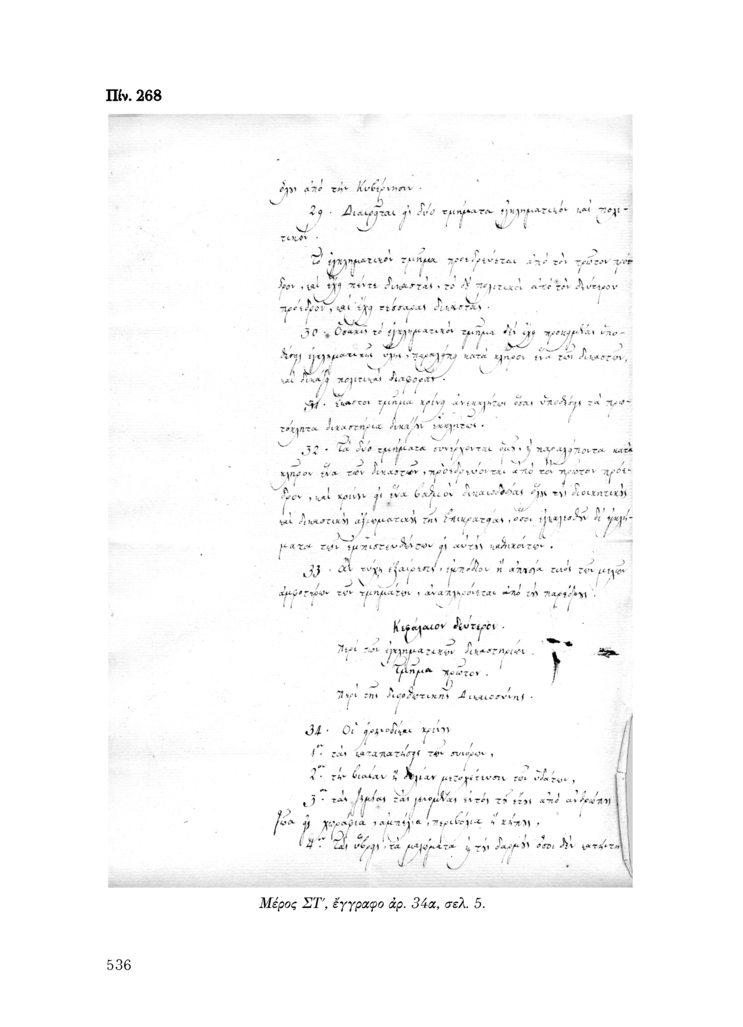 Πίν. 268
ὅλης ἀπό τήν Κυβέρνησιν.
29. Διαιρῆται εἰς δύο τμήματα ἐγκληματικόν καί πολι-
τικόν.
Τό ἐγκληματικόν τμῆμα προεδρεύεται ἀπό τόν πρῶτον πρόε
δρον, καί ἔχη πέντε δικαστάς, τό δέ πολιτικόν ἀπό τόν δεύτερον
πρόεδρον, καί ἔχη τέσσαρας δικαστάς.
30. Ὁσάκις τό ἐγκληματικόν τμῆμα δέν ἔχη προκημένας ὑπο-
θέσης ἐγκληματικῆς ὕλης, παραλήπη κατά κλῆρον ἕνα τῶν δικαστῶν,
καί δικάζη πολιτικάς διαφοράς.
31. Ἕκαστον τμῆμα κρίνη ἀνεκκλήτως ὅσας ὑποθέσης τά πρω-
τόκλητα δικαστήρια δικάζουν ἐκκλήτως.
32. Τά δύο τμήματα συνέρχονται ὁμοῦ, ἤ παραλήποντα κατά
κλῆρον ἕνα τῶν δικαστῶν, προεδρεύονται ἀπό τόν πρῶτον πρόε-
δρον, καί κρίνουν εἰς ἕνα βαθμόν δικαιοδοσίας ὅλους τούς διοικητικούς
καί δικαστικούς ἀξιωματικούς τῆς Ἐπικρατείας, ὅσοι ἐγκαλεσθοῦν δι' ἐγκλή-
ματα τῶν ἐμπιστευθέντων εἰς αὐτούς καθηκόντων.
33. Ἄν τύχη ἐξαίρεσις, ἐμπόδιον ἤ ἀπουσία τινός τῶν μελῶν
ἀμφοτέρων τῶν τμημάτων, ἀναπληρόνεται ἀπό τούς παρέδρους.
Κεφάλαιον δεύτερον.
Περί τῶν ἐγκληματικῶν δικαστηρίων.
Τμῆμα πρῶτον.
Περί τῆς διορθωτικῆς Δικαιοσύνης.
34. Οἱ εἰρηνοδίκαι κρίνουν
1ον τάς καταπατήσης τῶν συνόρων,
2ον τήν βιαίαν ἤ δολίαν μετοχέτευσιν τῶν ὑδάτων,
3ον τάς ζημίας τάς γενομένας ἐντός τοῦ ἔτους ἀπό ἀνθρώπους
ζῶα εἰς χωράφια, ἀμπέλια, περιβόλια ἤ κήπους,
4ον τάς ὕβρης, τά μαλώματα ἤ τούς δαρμούς ὅσοι δέν
Μέρος ΣΤ', ἔγγραφο ἀρ. 34α, σελ. 5.
536